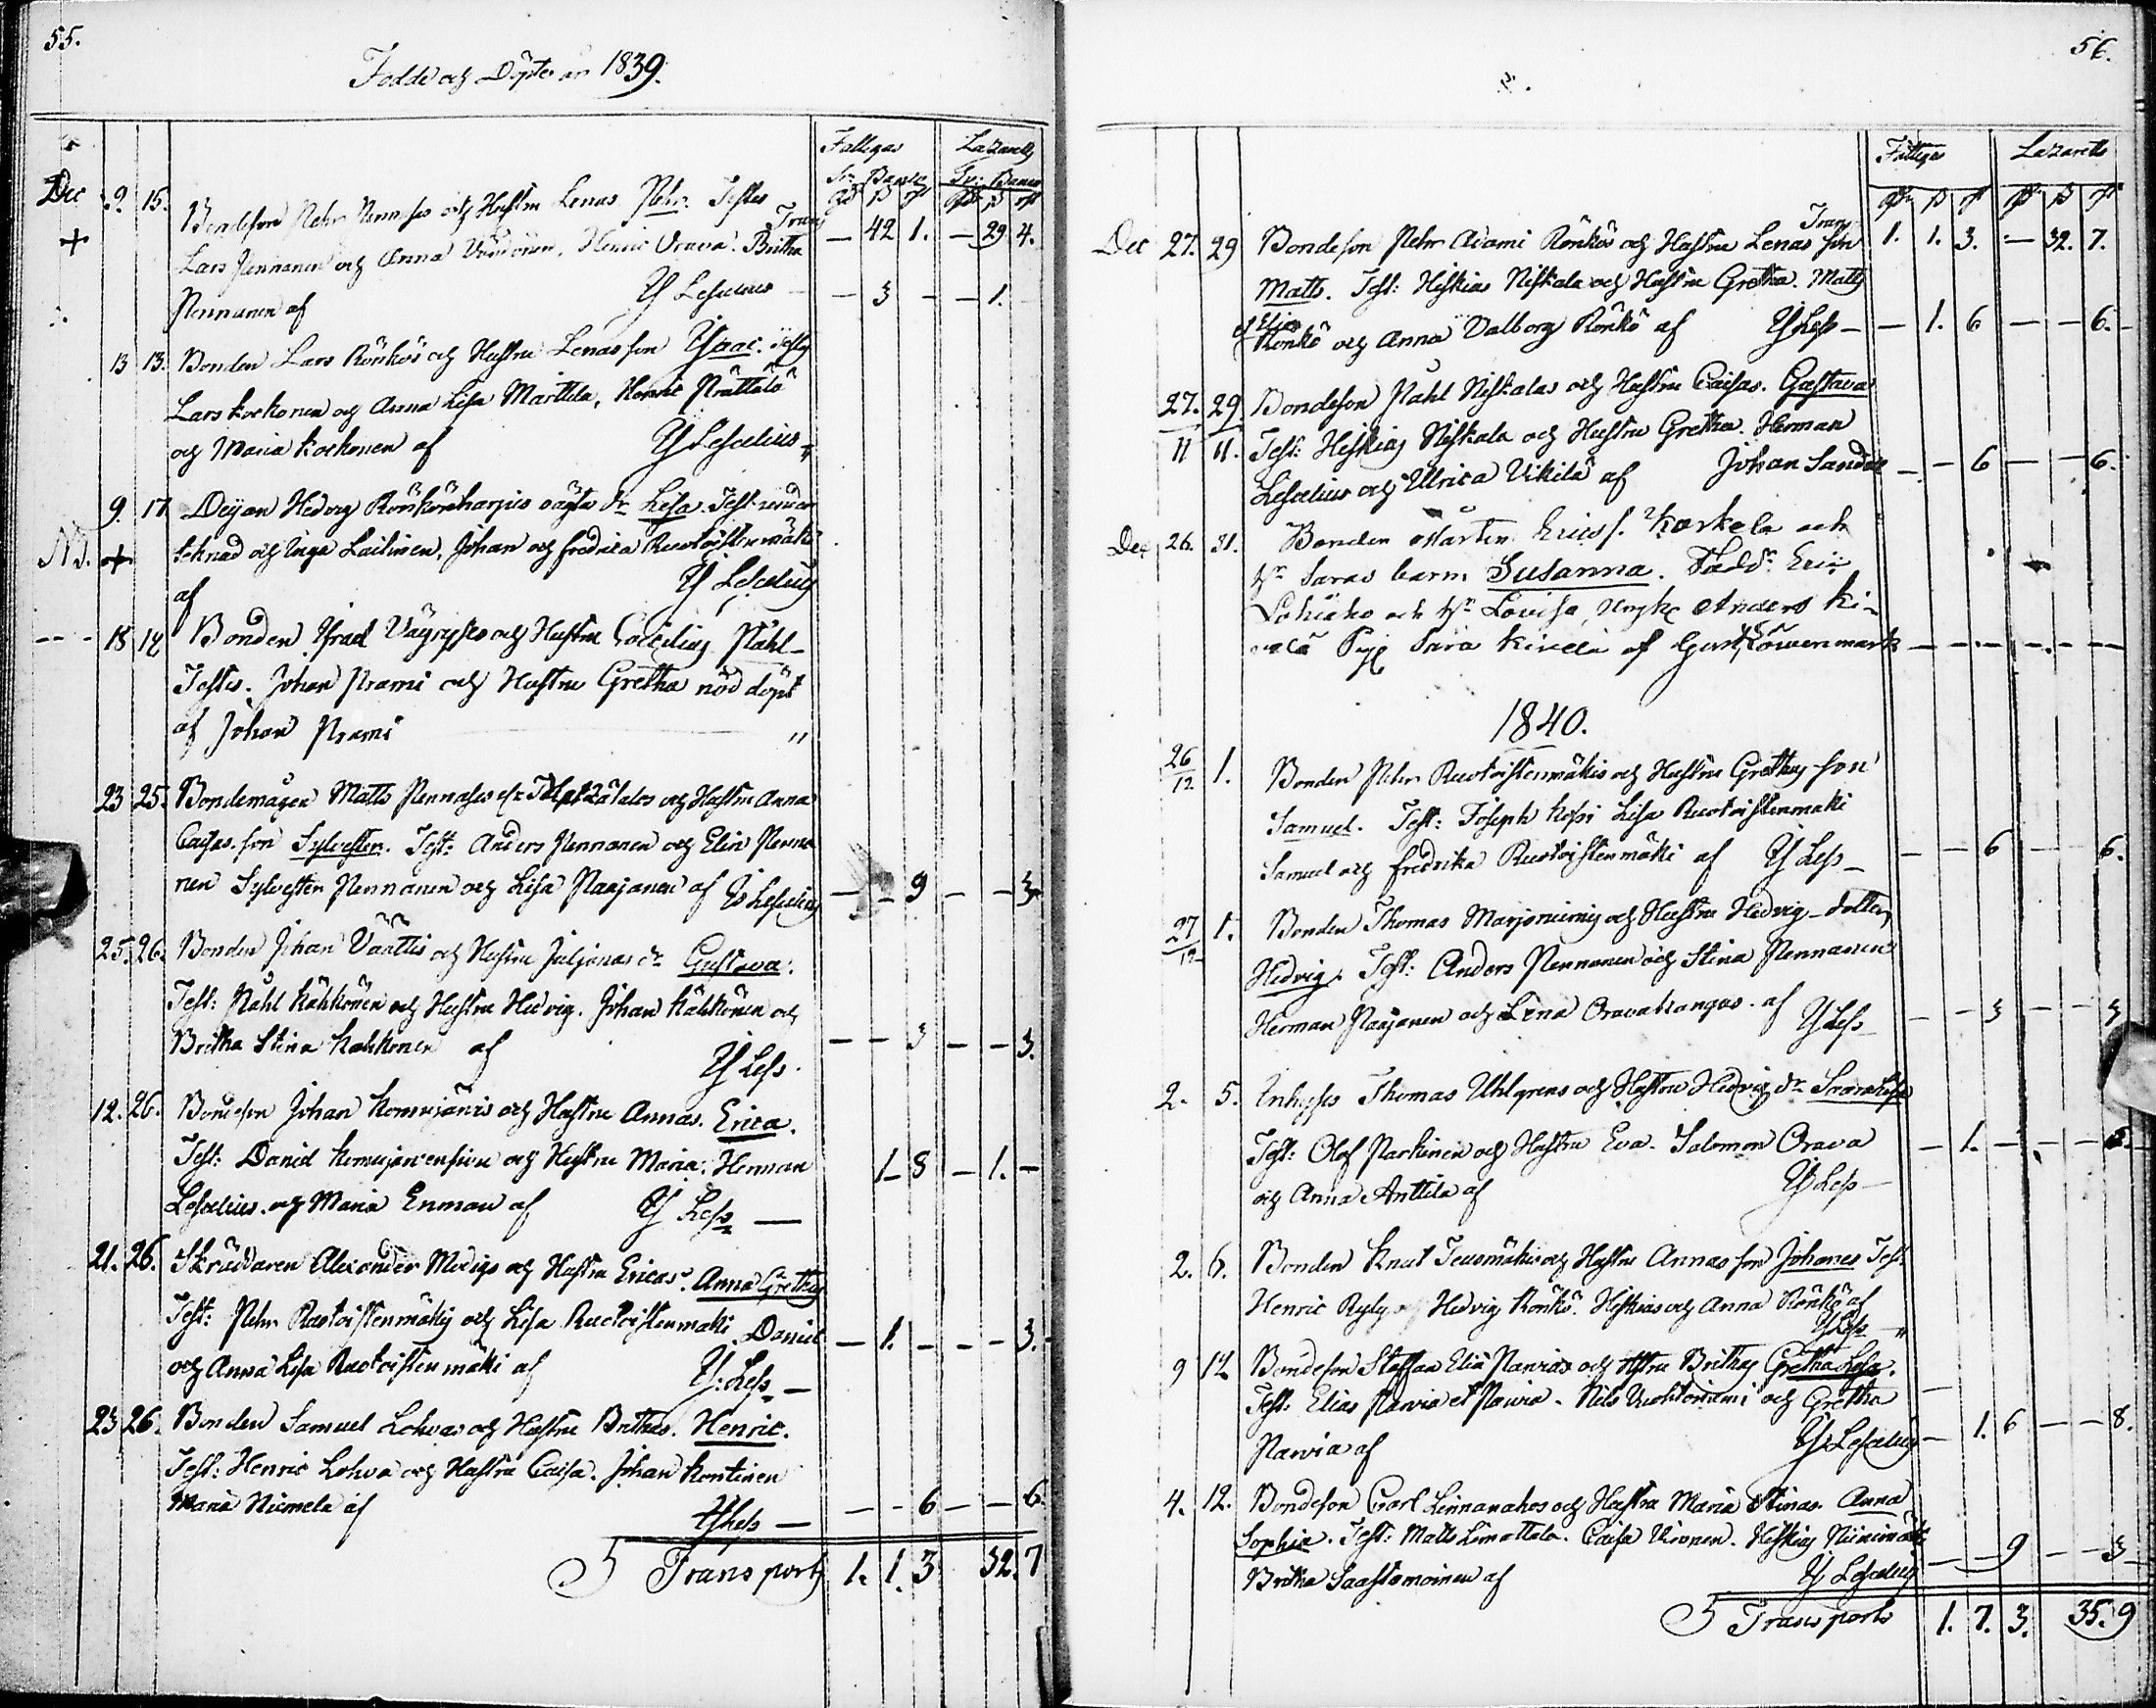 55.
Födde och Döpte år 1839.
Fattigas Lazaretts
Sv: Banco Sv: Banco
Dec 9. 15. Bondeson Pehr Pennases och Hustru Lenas Pehr. Testes Trans
Lars Pennanen och Anna Henric Orava. Britha — 42 1. — 29 4.
Pennanen af Is Lescelius — 3 — — 1.
13 13. Bonden Lars Rönkös och Hustru Lenas son Isaac. Testes
Lars Korkonen och Anna Lisa Marttila, Henric Prättälä
och Maria Korkonen af Is Lescelius
9. 17 Pigan Hedvig Rönkönharjus oägta dr Lisa. Test:
och Inga Laitinen, Johan och Fredrica Ruotoistenmäki
af Is Lescelius
18 18 Bonden Israel Väyrys och Hustru Cecilias Påhl
Testes. Johan Prami och Hustru Gretha nöddöpt
af Johan Prami "
23 25. Bondemågen Matts Pennases och Hustru Anna
Caisas son Sylvester. Test: Anders Pennanen och Elin Penna
nen Sylvester Pennanen och Lisa Paajanen af Is Lescelius — — 9 — — 3
25. 26. Bonden Johan Väättis och Hustru Juljanas dr Gustava.
Test: Påhl Kähkönen och Hustru Hedvig. Johan Kähkönen och
Britha Stina Kähkönen af Is Less. — — 3 — — 3.
12. 26. Bondeson Johan Komujärvis och Hustru Annas. Erica.
Test: David och Hustru Maria. Herman 1 8 — 1. —
Lescelius och Maria Enman af Is Less —
21. 26. Skräddaren Alexander Modigs och Hustru Ericas. Anna Gretha
Test: Pehr Ruotoistenmäki och Lisa Ruotoistenmäki Daniel — 1. — — — 3.
och Anna Lisa Ruotoistenmäki af Is: Less —
23 26. Bonden Samuel Lohvas och Hustru Brithas. Henric.
Test: Henric Lohva och Hustru Caisa. Johan Kontinen
Maria Niemela af Is Less — — — 6 — — 6
Transport 1. 1. 3 32. 7
56.
Fattigas Lazaretts
Trans
Dec 27. 29 Bondeson Pehr Adami Rönkös och Hustru Lenas son 1. 1. 3. — 32. 7.
Matts. Test: Heskias Niskala och Hustru Gretha. Matts
Elias
Rönkö och Anna Valborg Rönkö af Is Less — — 1. 6 — — 6.
27. 29 Bondeson Påhl Niskalas och Hustru Caisas. Gustava
11 11. Test: Heskias Niskala och Hustru Gretha. Herman
Lescelius och Ulrica Vikilä af Johan Sandel — — 6 — — 6.
Dec 26. 31. Bonden Mårten Ericss. Karkela och
Hr Saras barn Susanna. Fadd: Eric
Lohiaho och Hr Lovisa, Yngke Anders Ki-
velä Pig Sara Kivelä af Gust Löwenmark — — — — — —
1840.
26/12 1. Bonden Pehr Ruotoistenmäkis och Hustru Grethas son
Samuel. Test: Joseph Kossi Lisa Ruotoistenmäki
Samuel och Fredrika Ruotoistenmäki af Is Less — — — 6 — — 6.
27/12 1. Bonden Thomas Marjoniemis och Hustru Hedvig dotter
Hedvig. Test: Anders Pennanen och Stina Pennanen
Herman Paajanen och Lena Oravakangas. af Is Less — — 3 — — 3
2. 5. Inhyses Thomas Uhlgrens och Hustru Hedvigs dr Sara Lisa
Test: Olof Parkinen och Hustru Eva. Salomon Orava — 1. — — —
och Anna Anttila af Is Less —
2. 6. Bonden Knut Teusmäkis och Hustru Annas son Johanes Test:
Henric Ryly och Hedvig Rönkö. Heskias och Anna Rönkö af
Is Less "
9 12 Bondeson Staffan Elia Parvias och Hustru Brithas Gretha Lisa.
Test: Elias Parvia et Parvia. Nils Vuohtoniemi och Gretha
Parvia af Is Lescelius — 1. 6 — — 8.
4. 12. Bondeson Carl Linnanahos och Hustru Maria Stinas. Anna
Sophia. Test: Matts Limattala. Caisa Kironen. Heskias Niinimäki
Britha Saastamoinen af Is Lescelius — — 9 — — 3
Transport 1. 7. 3. 35. 9